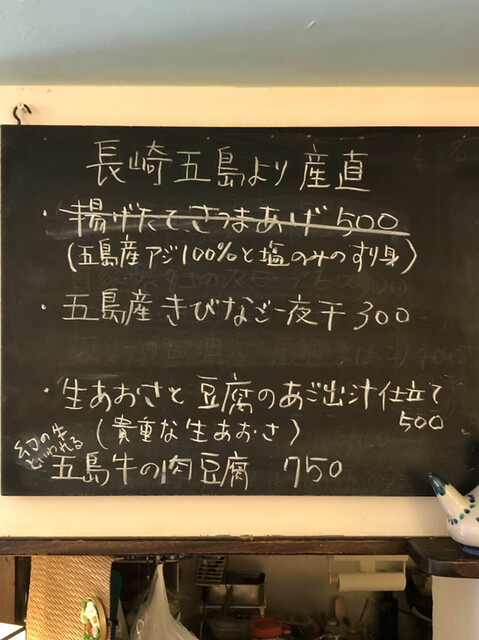 長崎五島より産直
・揚げたてさつまあげ 500
(五島産アジ100%と塩のみのすり身)
・五島産きびなご一夜干 300
・生あおさと豆腐のあご出汁仕立て
500
(貴重な生あおさ)
幻の牛
といわれる
五島牛の肉豆腐 750